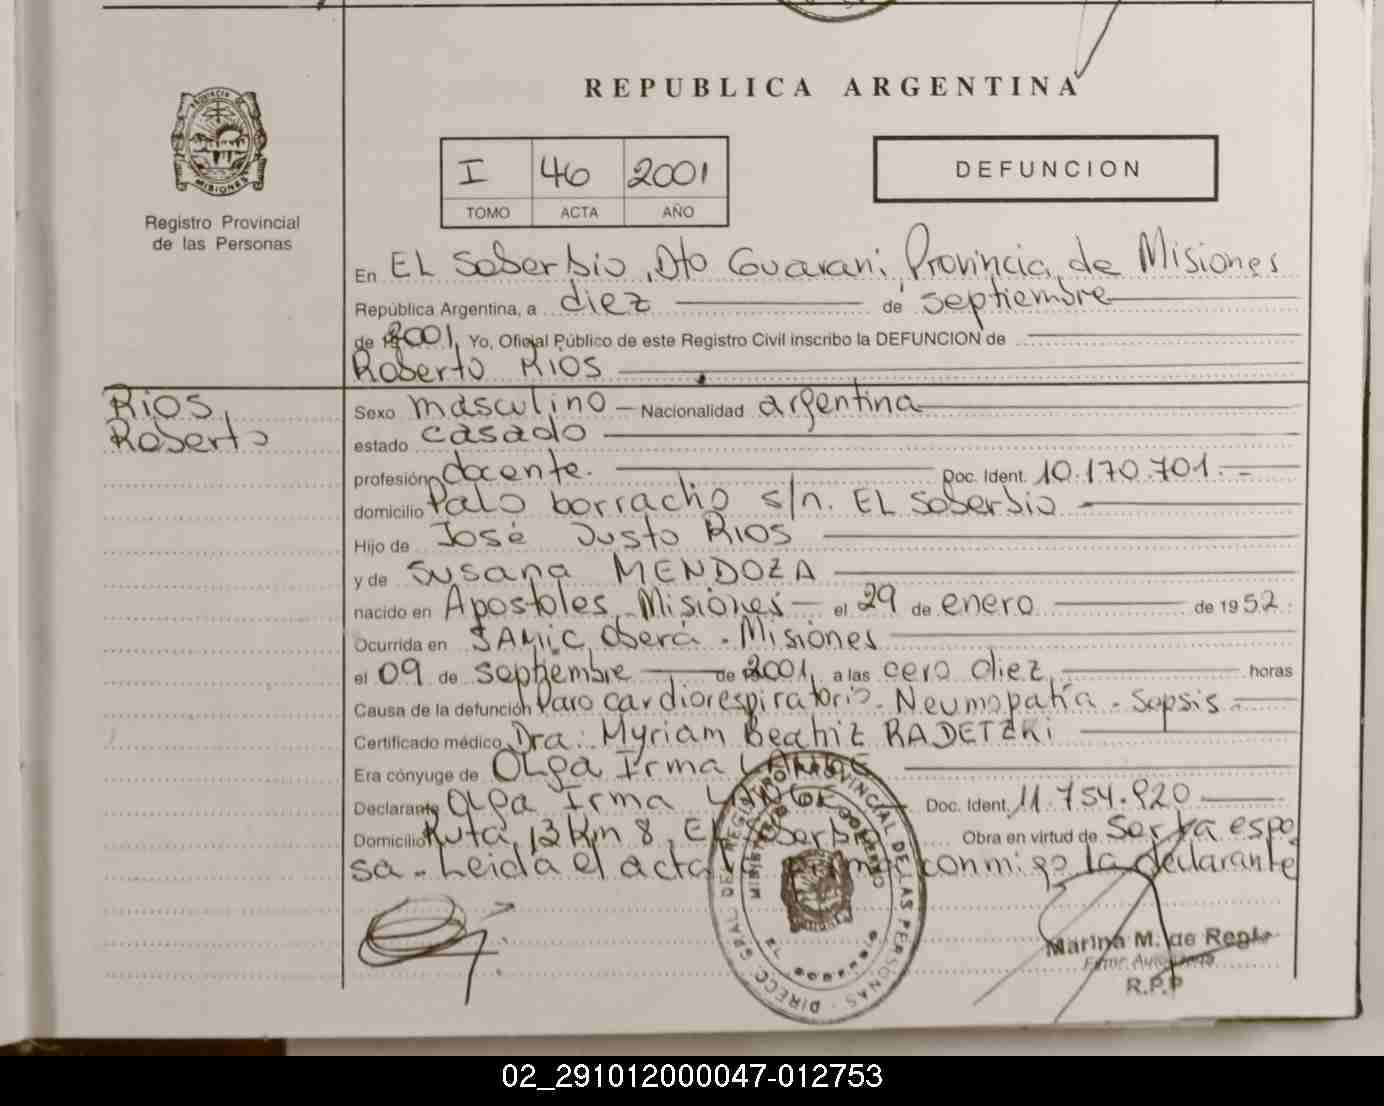 REPUBLICA ARGENTINA
PROVINCIA DE
MISIONES
Registro Provincial
de las Personas
I 46 2001
TOMO ACTA AÑO
DEFUNCION
En EL Soberbio, Dto Guarani, Provincia de Misiones
República Argentina, a diez de septiembre
de 2001, Yo, Oficial Público de este Registro Civil inscribo la DEFUNCION de
Roberto RIOS
RIOS,
Roberto
Sexo masculino - Nacionalidad argentina
estado casado
profesión docente. Doc. Ident. 10.170.701.-
domicilio Palo borracho s/n. EL Soberbio -
Hijo de José Justo RIOS
y de Susana MENDOZA
nacido en Apostoles Misiones - el 29 de enero de 1952.
Ocurrida en SAMIC Oberá - Misiones
el 09 de septiembre de 2001, a las cero diez, horas
Causa de la defunción Paro cardiorespiratorio - Neumopatía - Sepsis -
Certificado médico Dra. Myriam Beatriz RADETZKI
Era cónyuge de Olga Irma
Declarante Olga Irma Doc. Ident. 11.754.920
Domicilio Ruta 13 Km 8, El Soberbio Obra en virtud de ser la espo
sa - Leída el acta firma conmigo la declarante
DIRECC. GRAL. DE REGISTRO PROVINCIAL DE LAS PERSONAS
MINISTERIO DE GOBIERNO
EL SOBERBIO
Marina M. de
R.P.P
02_291012000047-012753